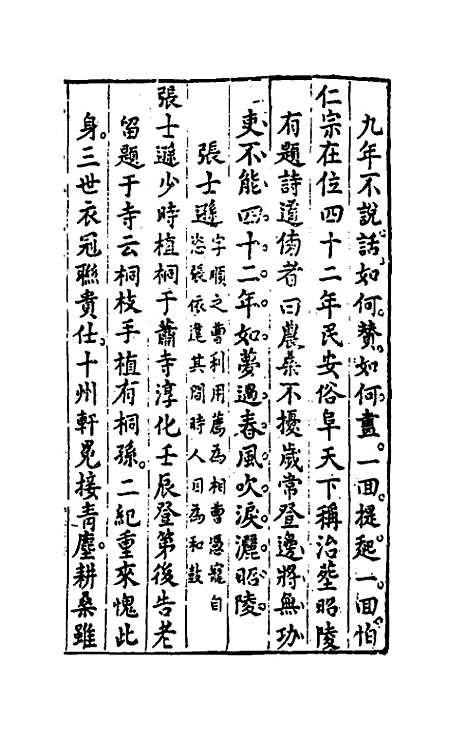 九年不說話。如何贊。如何畫。一回提起。一回怕
仁宗在位四十二年民安俗阜天下稱治葬昭陵
有題詩道傍者曰農桑不擾歲常登邊將無功
吏不能四十二年如夢過春風吹淚灑昭陵
張士遜字順之曹利用薦為相曹憑寵自
恣張依違其間時人目為和鼓
張士遜少時植桐于蕭寺淳化壬辰登第後告老
留題于寺云桐枝手植有桐孫。二紀重來愧此
身。三世衣冠聯貴仕。十州軒冕接青塵。耕桑雖